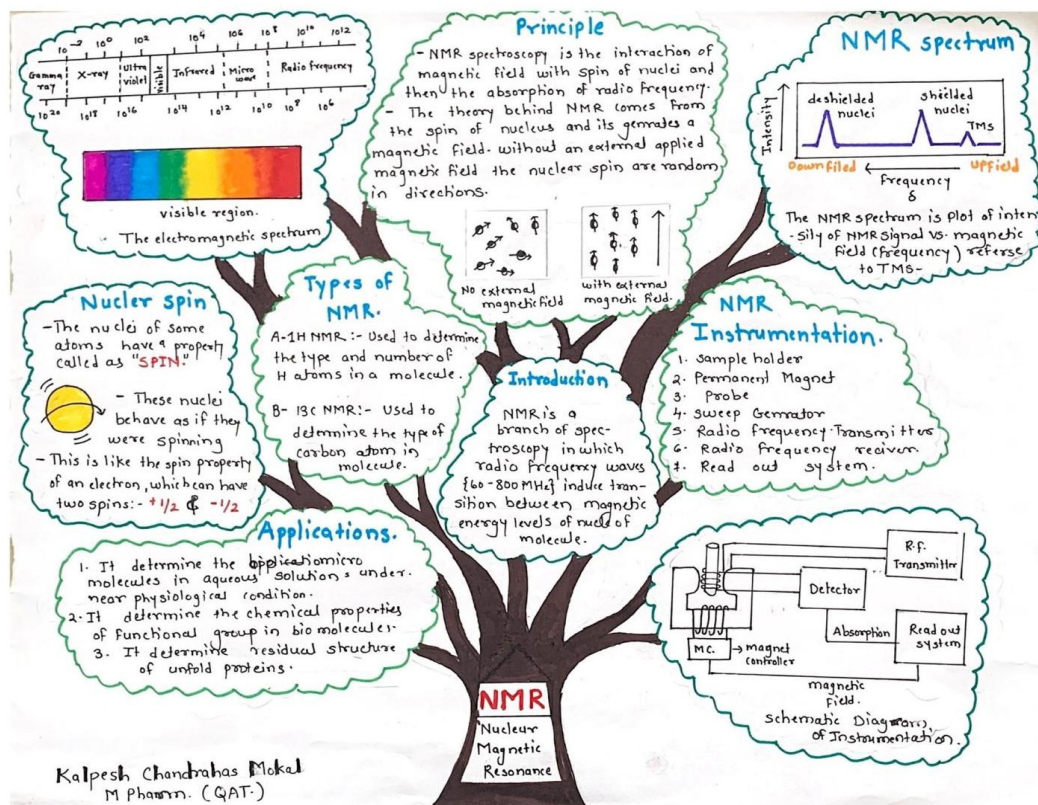 10⁻² 10⁰ 10² 10⁴ 10⁶ 10⁸ 10¹⁰ 10¹²
Gamma ray X-ray Ultra violet Visible Infrared Micro wave Radio frequency
10²⁰ 10¹⁸ 10¹⁶ 10¹⁴ 10¹² 10¹⁰ 10⁸ 10⁶
visible region.
The electromagnetic spectrum
Principle
- NMR spectroscopy is the interaction of
magnetic field with spin of nuclei and
then the absorption of radio frequency.
- The theory behind NMR comes from
the spin of nucleus and its genrates a
magnetic field. without an external applied
magnetic field the nuclear spin are random
in directions.
No external
magnetic field
with external
magnetic field.
NMR spectrum
Intensity
deshielded
nuclei
shielded
nuclei
TMS
Downfiled
Upfield
frequency
δ
The NMR spectrum is plot of inten
-sily of NMR signal vs. magnetic
field (frequency) referse
to TMS-
Nucler spin
- The nuclei of some
atoms have a property
called as "SPIN."
- These nuclei
behave as if they
were spinning
- This is like the spin property
of an electron, which can have
two spins:- +1/2 & -1/2
Types of
NMR.
A-1H NMR :- Used to determine
the type and number of
H atoms in a molecule.
B- 13C NMR:- Used to
determine the type of
carbon atom in
molecule.
Introduction
NMR is a
branch of spec-
troscopy in which
radio frequency waves
{60-800 MHz} induce tran
sition between magnetic
energy levels of nuclei of
molecule.
NMR
Instrumentation.
1. Sample holder
2. Permanent Magnet
3. Probe
4. Sweep Genrator
5. Radio frequency-Transmitter
6. Radio frequency reciver
7. Read out system.
Applications.
1. It determine the micro
molecules in aqueous solutions under
near physiological condition.
2. It determine the chemical properties
of functional group in bio molecules.
3. It determine residual structure
of unfold proteins.
R.f.
Transmitter
Detector
Absorption
Read out
system
M.C.
magnet
controller
magnetic
field.
Schematic Diagram
of Instrumentation.
NMR
Nucleur
Magnetic
Resonance
Kalpesh Chandrahas Mokal
M Pharm. (QAT.)